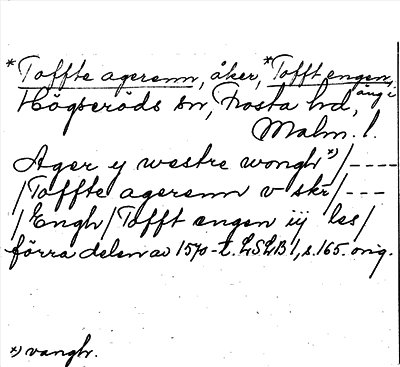 *Toffte agerenn, åker, *Tofft engen, äng i
Högseröds sn, Frosta hd,
Malm. l.
Ager ij westre wongh *) /----
/Toffte agerenn v skr/---
/Engh/Tofft engen iij les/
förra delen av 1570-t. LSLB 1, s.165. orig.
*) vangh.